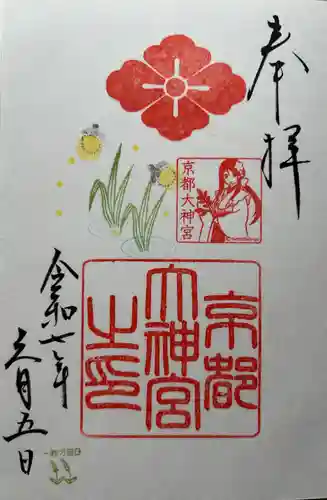 奉拝
京都大神宮
京都
大神宮
之印
令和七年
六月五日